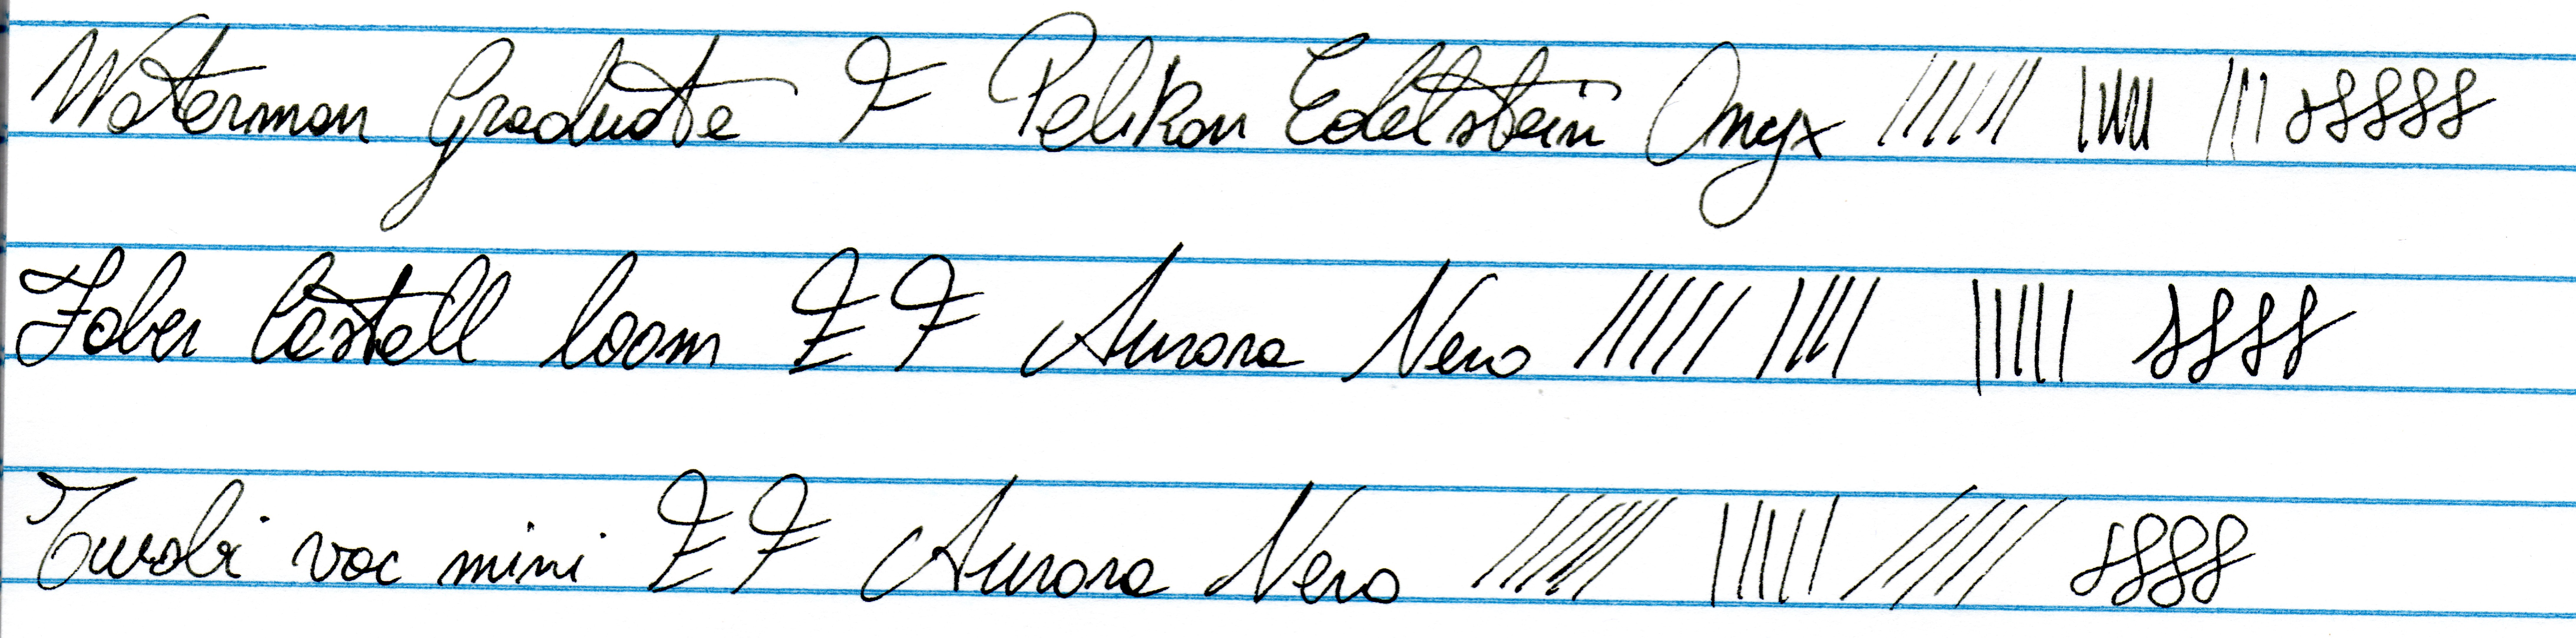 Waterman Graduate F Pelikan Edelstein Onyx
Faber Castell loom EF Aurora Nero
Twsbi vac mini EF Aurora Nero